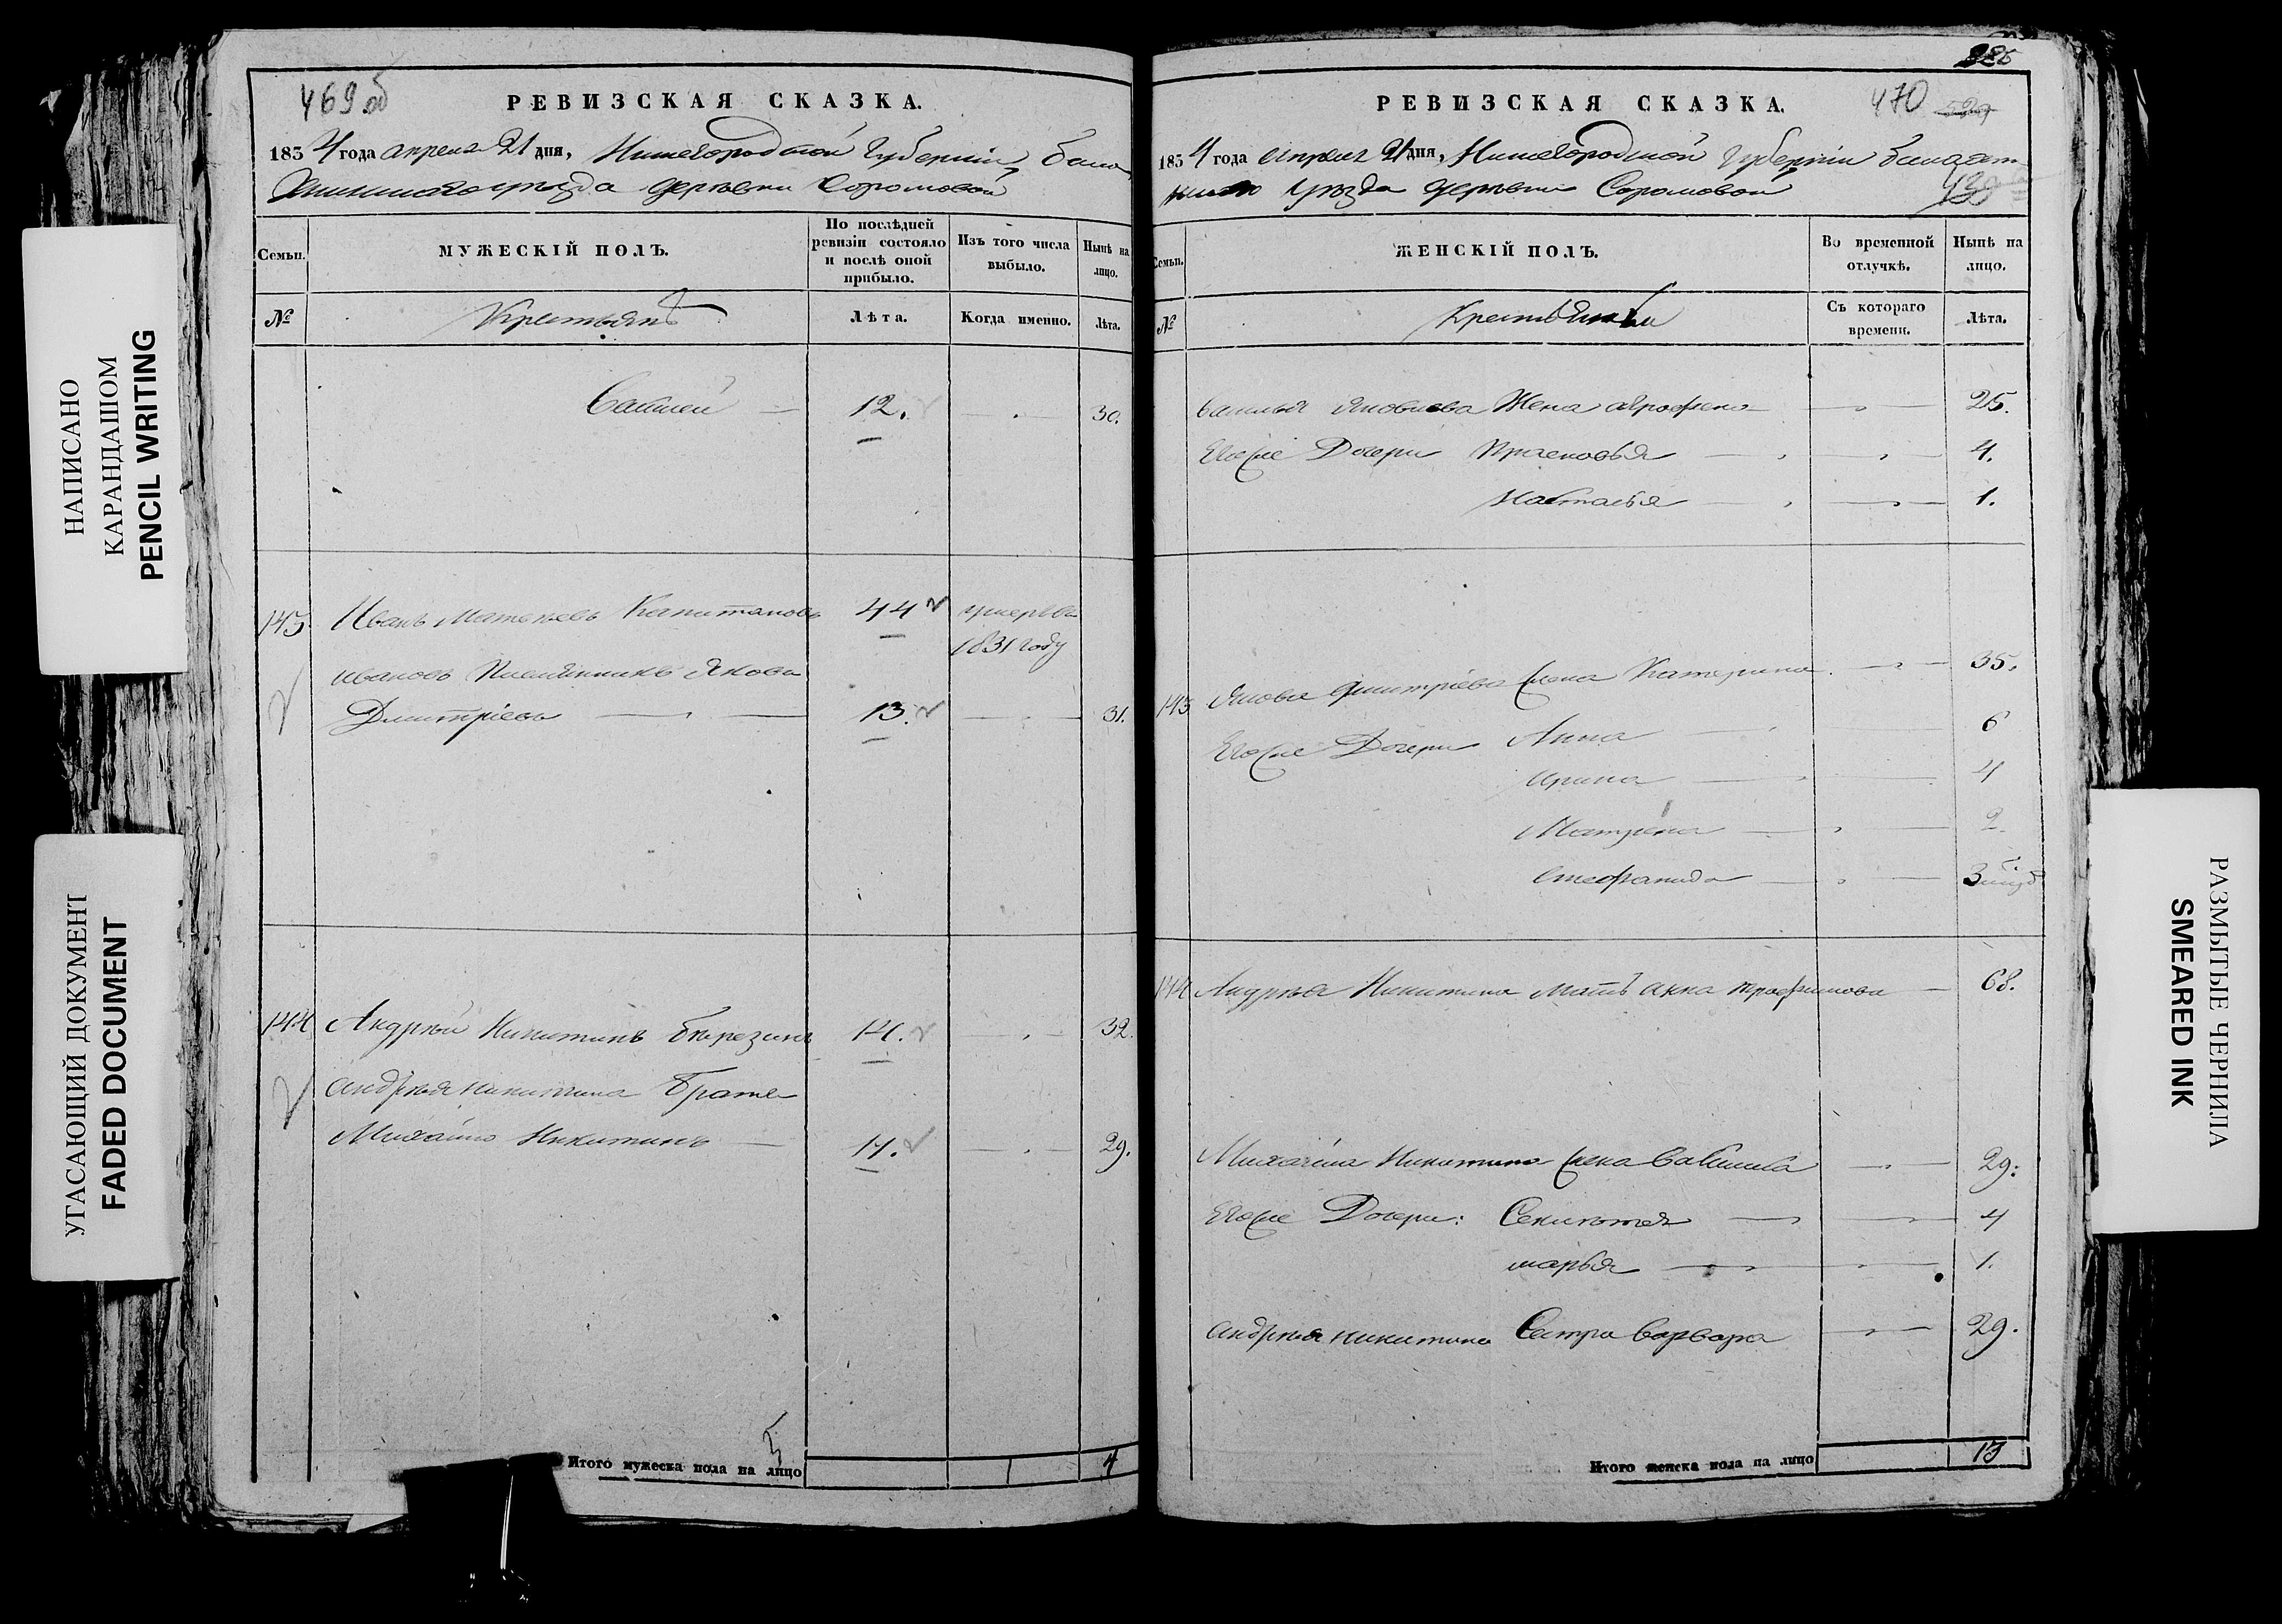 НАПИСАНО
КАРАНДАШОМ
PENCIL WRITING
УГАСАЮЩИЙ ДОКУМЕНТ
FADED DOCUMENT
469 об
РЕВИЗСКАЯ СКАЗКА.
1834 года апреля 21 дня, Нижегородской Губернии Бала
хнинскаго уезда деревни Соромовой
Семьи. МУЖЕСКІЙ ПОЛЪ. По послѣдней ревизіи состояло и послѣ оной прибыло. Изъ того числа выбыло. Нынѣ на лицо.
№ Крестьянъ Лѣта. Когда именно. Лѣта.
Василей 12. 30.
143 Иванъ Матвеевъ Капитановъ 44 умеръ въ
1831 году
Ивановъ Племянникъ Яковъ
Дмитріевъ 13. 31.
144 Андрѣй Никитинъ Бѣрезинъ 14. 32.
Андрѣя Никитина Братъ
Михайло Никитинъ 11. 29.
5
Итого мужеска пола на лицо 1 4
470
РЕВИЗСКАЯ СКАЗКА.
1834 года Апреля 21 дня, Нижегородской Губерніи Балахн
уѣзда деревни Соромовой
Семьи. ЖЕНСКІЙ ПОЛЪ. Во временной отлучкѣ. Нынѣ на лицо.
№ Съ котораго времени. Лѣта.
Василья Яковлева Жена 25.
Его же Дочери Прасковья 4.
Настасья 1.
143 Якова Дмитріева жена Катерина 35.
Его же Дочери Анна 6
Ирина 4
Матрена 2
Стефанида 3
144 Андрѣя Никитина мать Анна Трофимова 68.
Михайла Никитина жена Василиса 29.
Его же Дочери: 4
марья 1.
Андрѣя Никитина Сестра Варвара 29.
Итого женска пола на лицо 13
РАЗМЫТЫЕ ЧЕРНИЛА
SMEARED INK